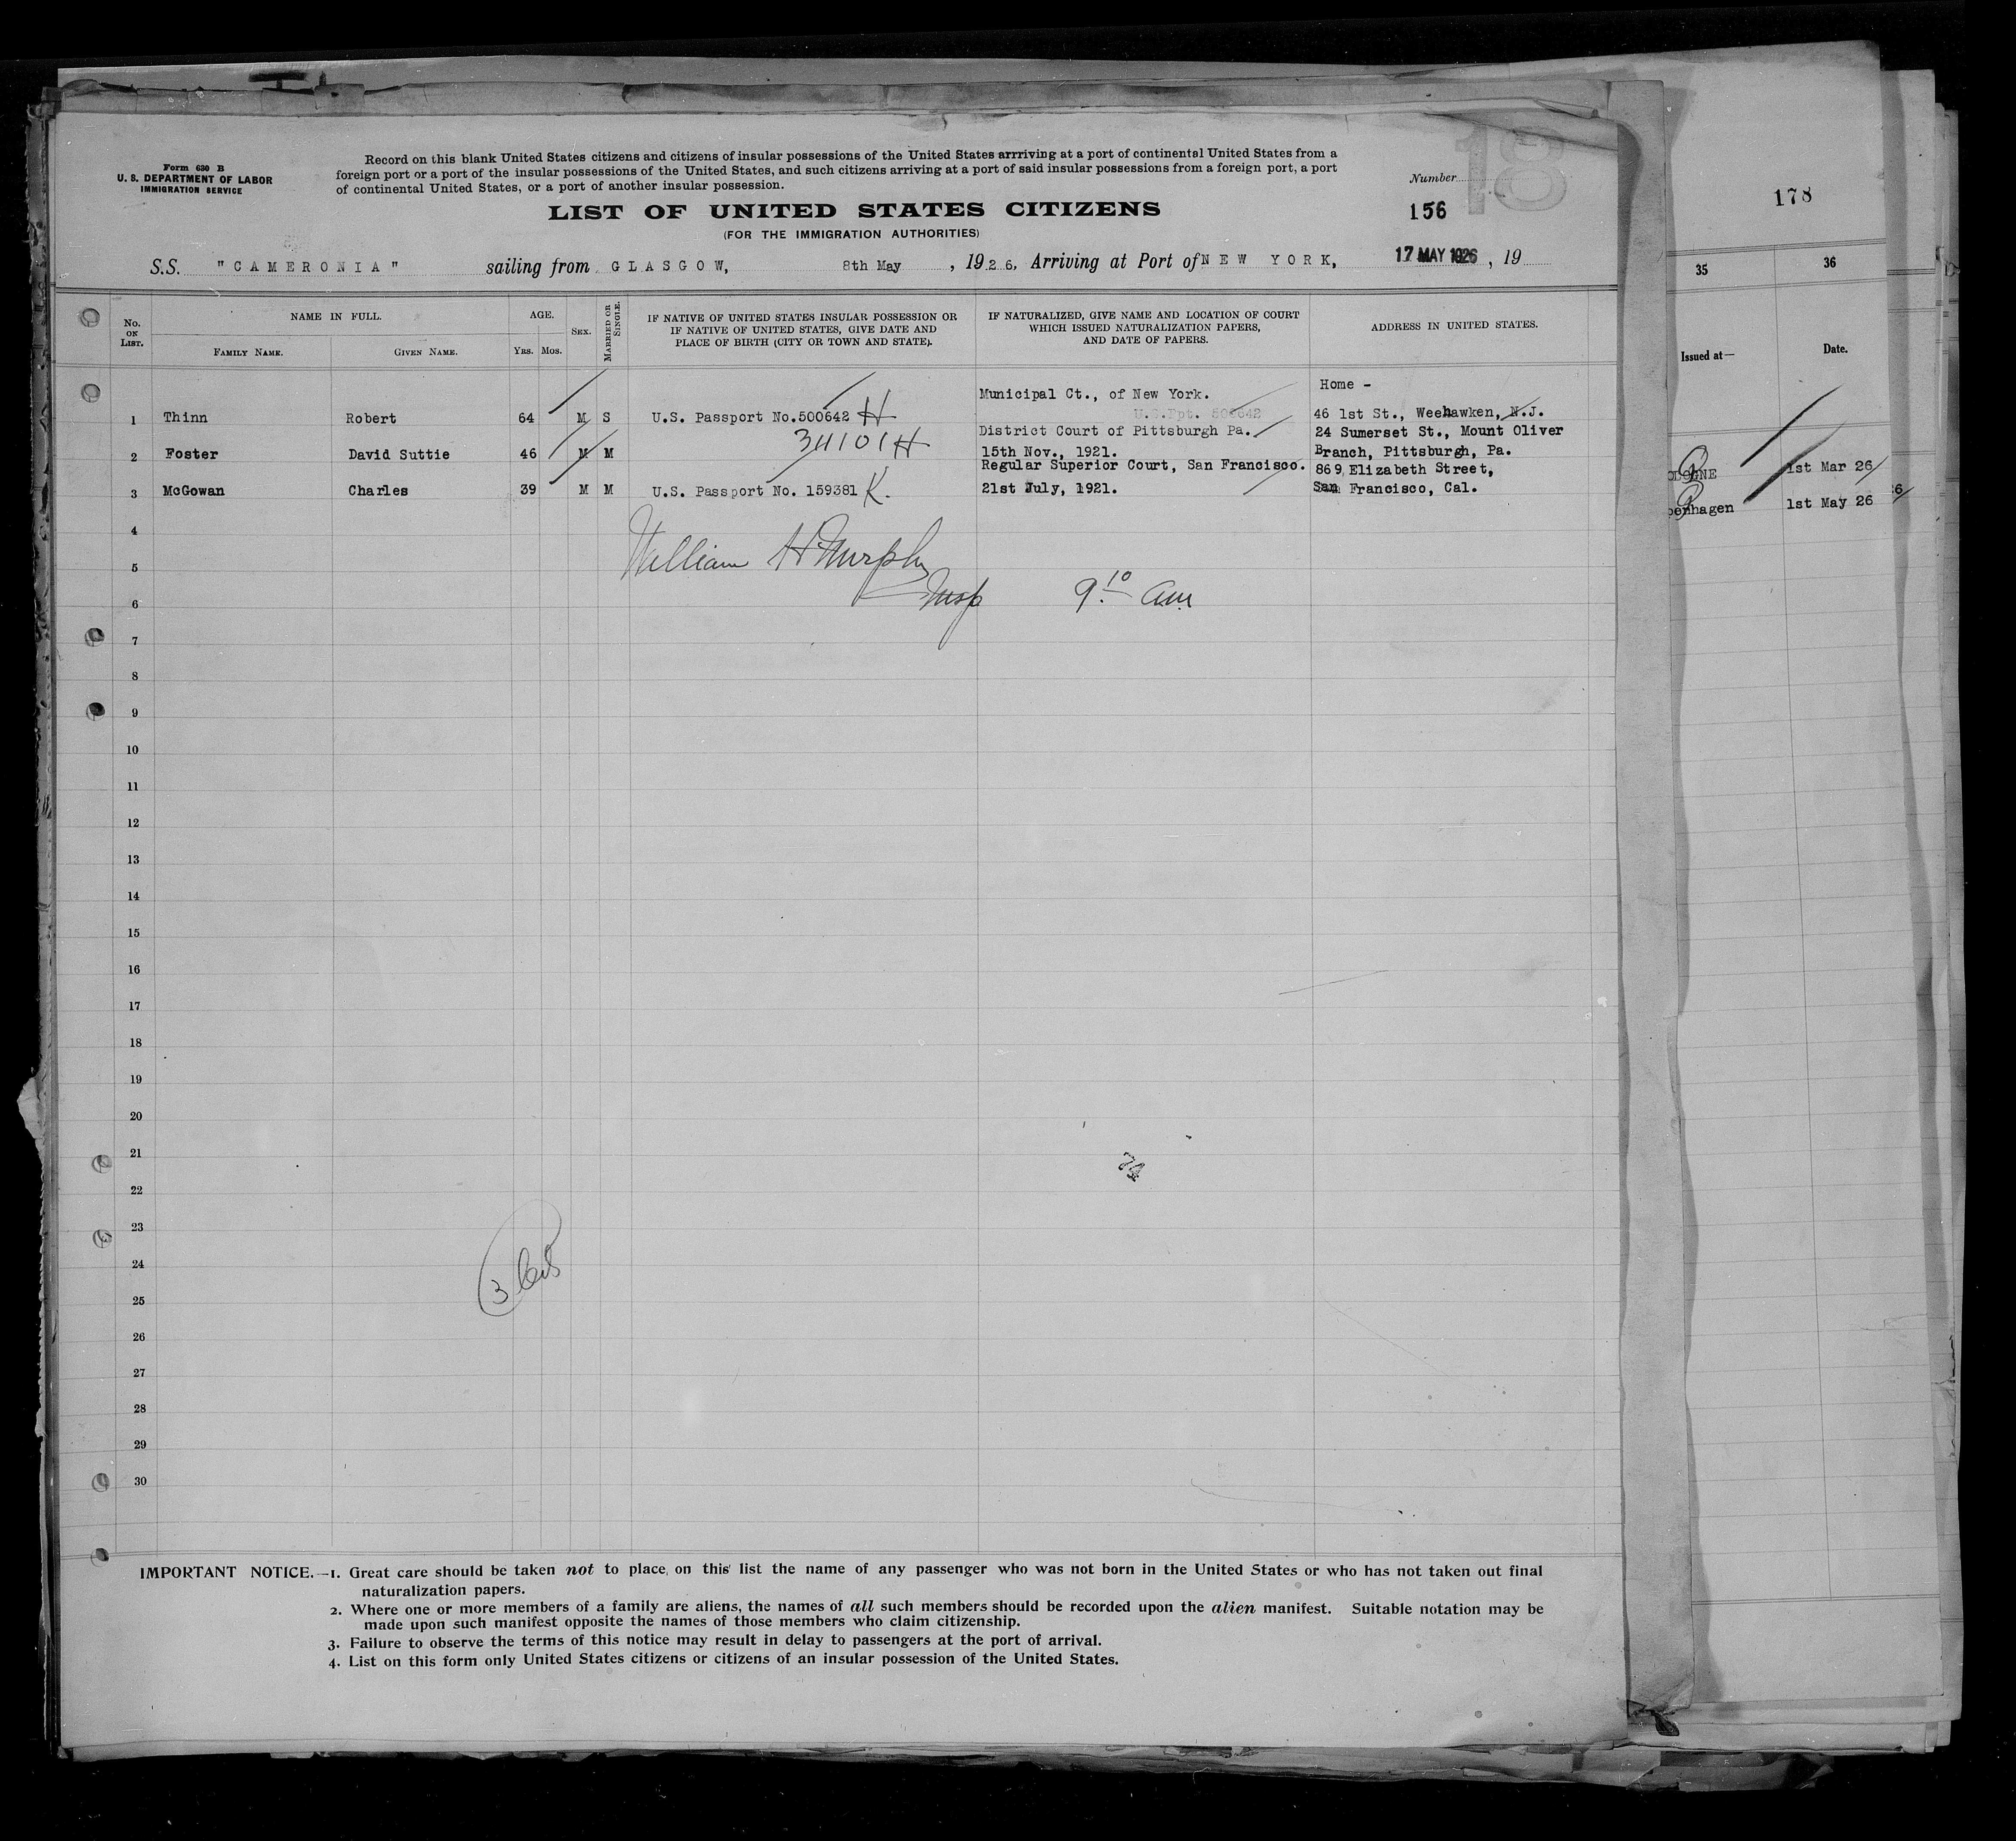 Form 630 B
U. S. DEPARTMENT OF LABOR
IMMIGRATION SERVICE
Record on this blank United States citizens and citizens of insular possessions of the United States arrriving at a port of continental United States from a
foreign port or a port of the insular possessions of the United States, and such citizens arriving at a port of said insular possessions from a foreign port, a port
of continental United States, or a port of another insular possession.
Number
18
156
178
LIST OF UNITED STATES CITIZENS
(FOR THE IMMIGRATION AUTHORITIES)
S.S. "CAMERONIA" sailing from GLASGOW, 8th May, 1926, Arriving at Port of NEW YORK, 17 MAY 1926, 19
35 36
No. ON LIST.
NAME IN FULL.
FAMILY NAME. GIVEN NAME.
AGE.
YRS. MOS.
SEX.
MARRIED OR SINGLE.
IF NATIVE OF UNITED STATES INSULAR POSSESSION OR
IF NATIVE OF UNITED STATES, GIVE DATE AND
PLACE OF BIRTH (CITY OR TOWN AND STATE).
IF NATURALIZED, GIVE NAME AND LOCATION OF COURT
WHICH ISSUED NATURALIZATION PAPERS,
AND DATE OF PAPERS.
ADDRESS IN UNITED STATES.
Issued at— Date.
Municipal Ct., of New York. Home -
1 Thinn Robert 64 M S U.S. Passport No.500642 H U.S.Ppt. 500642 46 1st St., Weehawken, N.J.
34101 H District Court of Pittsburgh Pa. 24 Sumerset St., Mount Oliver
2 Foster David Suttie 46 M M 15th Nov., 1921. Branch, Pittsburgh, Pa.
Regular Superior Court, San Francisco. 869 Elizabeth Street,
3 McGowan Charles 39 M M U.S. Passport No. 159381 K. 21st July, 1921. San Francisco, Cal.
OLOGNE 1st Mar 26
penhagen 1st May 26
4
William H Murphy
5
Insp 9.10 am
6
7
8
9
10
11
12
13
14
15
16
17
18
19
20
21
22
23
24
3 Cits
25
26
27
28
29
30
IMPORTANT NOTICE.—1. Great care should be taken not to place on this list the name of any passenger who was not born in the United States or who has not taken out final
naturalization papers.
2. Where one or more members of a family are aliens, the names of all such members should be recorded upon the alien manifest. Suitable notation may be
made upon such manifest opposite the names of those members who claim citizenship.
3. Failure to observe the terms of this notice may result in delay to passengers at the port of arrival.
4. List on this form only United States citizens or citizens of an insular possession of the United States.